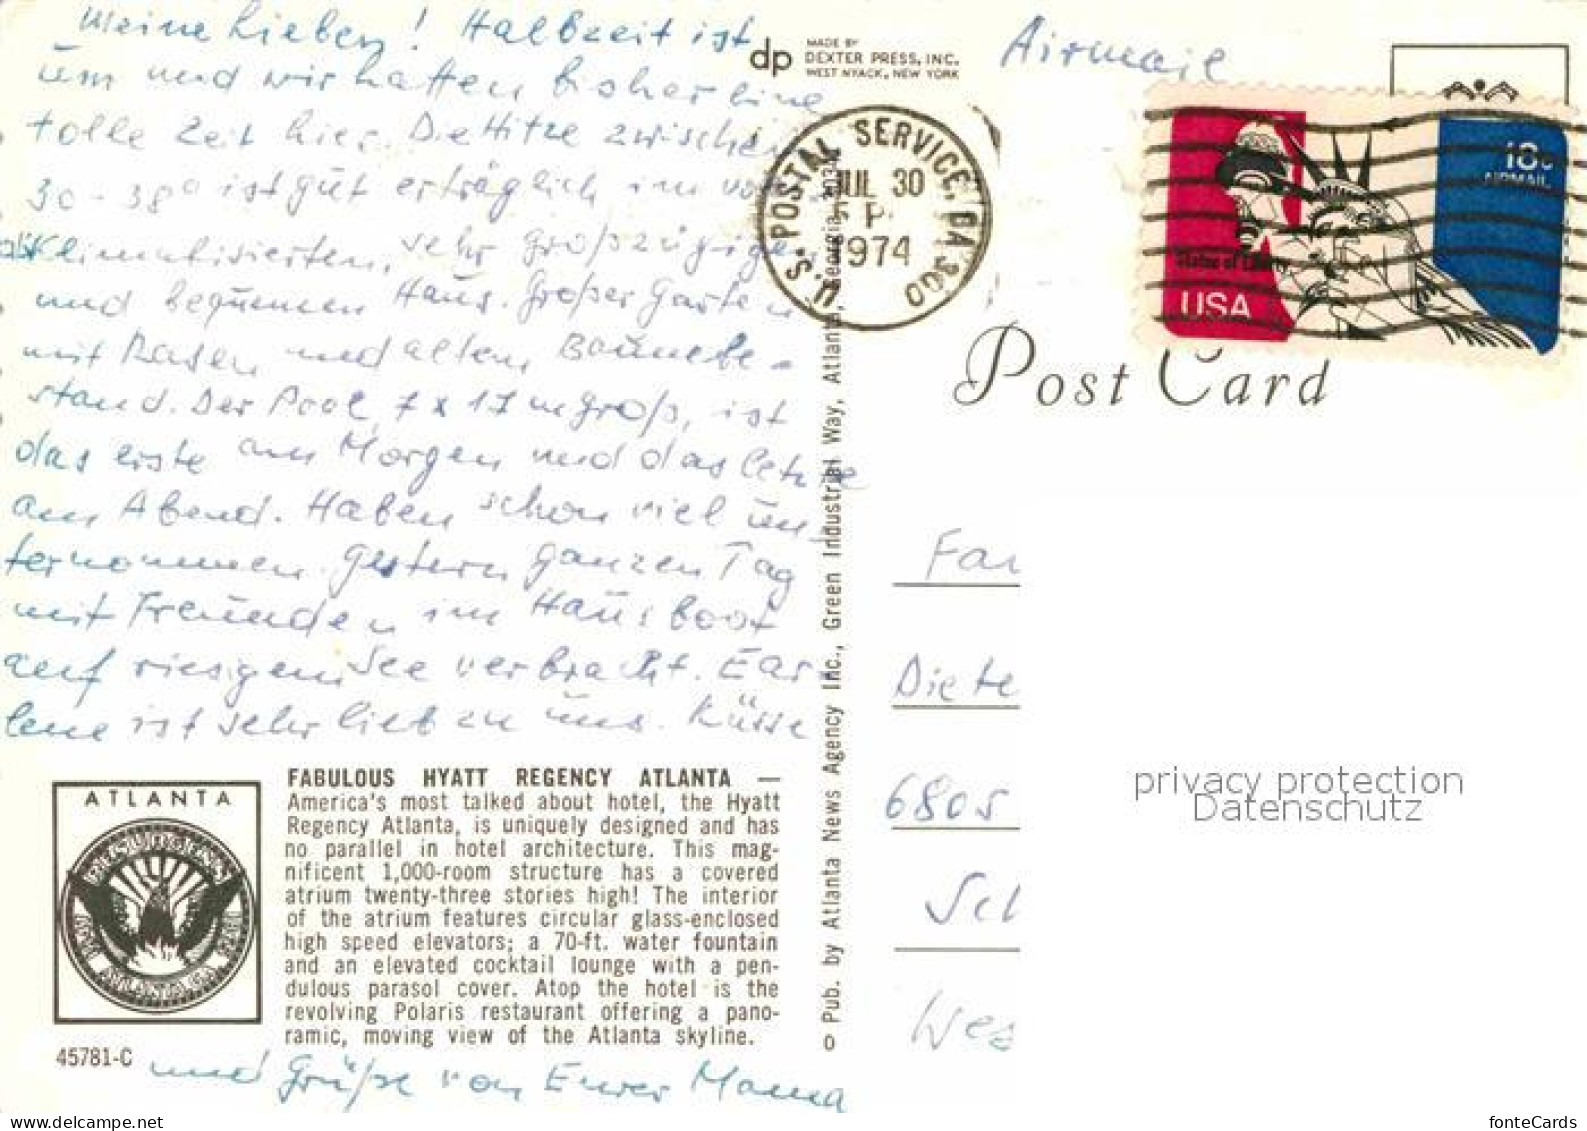 Meine Lieben! Halbzeit ist
um und wir hatten bisher eine
tolle Zeit hier. Die Hitze zwischen
30-38° ist gut erträglich im voll
klimatisierten, sehr großzügigen
und bequemen Haus. Großer Garten
mit Rasen und altem Baumbe-
stand. Der Pool, 7 x 17 m groß, ist
das erste am Morgen und das letzte
am Abend. Haben schon viel un-
ternommen. Gestern ganzen Tag
mit Freunden im Hausboot
auf riesigem See verbracht. Ear-
lene ist sehr lieb zu uns. Küsse
und Grüße von Eurer Mama
FABULOUS HYATT REGENCY ATLANTA —
America's most talked about hotel, the Hyatt
Regency Atlanta, is uniquely designed and has
no parallel in hotel architecture. This mag-
nificent 1,000-room structure has a covered
atrium twenty-three stories high! The interior
of the atrium features circular glass-enclosed
high speed elevators; a 70-ft. water fountain
and an elevated cocktail lounge with a pen-
dulous parasol cover. Atop the hotel is the
revolving Polaris restaurant offering a pano-
ramic, moving view of the Atlanta skyline.
ATLANTA
RESURGENS
ATLANTA, GA.
45781-C
dp
MADE BY
DEXTER PRESS, INC.
WEST NYACK, NEW YORK
Pub. by Atlanta News Agency Inc., Green Industrial Way, Atlanta, Georgia
Airmail
U.S. POSTAL SERVICE, GA 300
JUL 30
P
1974
18c
AIRMAIL
Statue of Liberty
USA
Post Card
Fa
Diete
6805
Sch
Wes
privacy protection
Datenschutz
fonteCards